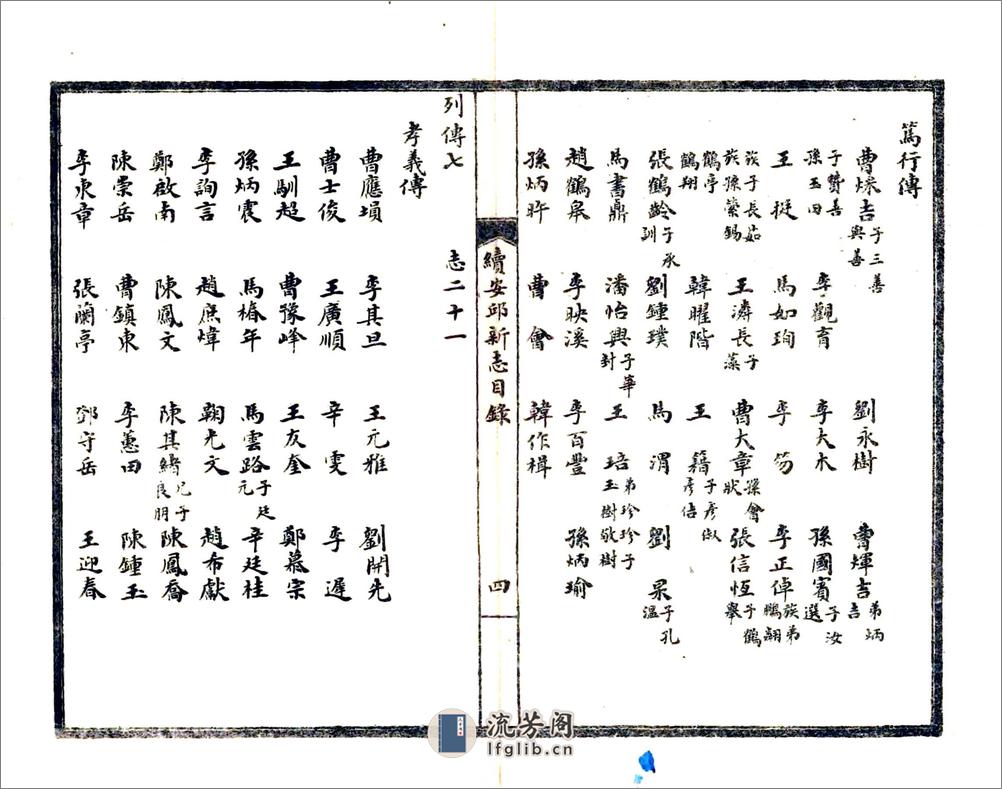 篤行傳
曹烁吉子三善興善 劉永樹 曹煇吉弟炳吉
子贊善孫玉田 李觀育 李大木 孫國賓子汝選
王挺 馬如珣 李笏 李正倬族弟鵬翮
族子長茹族孫縈錫 王潾長子藻 曹大章孫會狀 張信恆子鶴舉
鶴亭鶴翔 韓曜階 王籍子彥俶彥佶
張鶴齡子承訓 劉鍾璞 馬渭 劉杲子孔溫
馬書鼎 潘怡興子華封 王琣弟珍珍子玉樹敬樹
趙鶴皋 李映溪 李百豐 孫炳瑜
孫炳昨 曹會 韓作楫
續安邱新志目錄 四
列傳七 志二十一
孝義傳
曹應塤 李其旦 王元雅 劉開先
曹士俊 王廣順 辛雯 李遲
王馴超 曹豫峰 王友奎 鄭慕宗
孫炳震 馬椿年 馬雲路子廷元 辛廷桂
李詢言 趙庶煒 鞠允文 趙布獻
鄭啟南 陳鳳文 陳其緒兄子良朋 陳鳳喬
陳崇岳 曹鎮東 李蕙田 陳鍾玉
李東章 張蘭亭 鄧守岳 王迎春
流芳阁
lfglib.cn